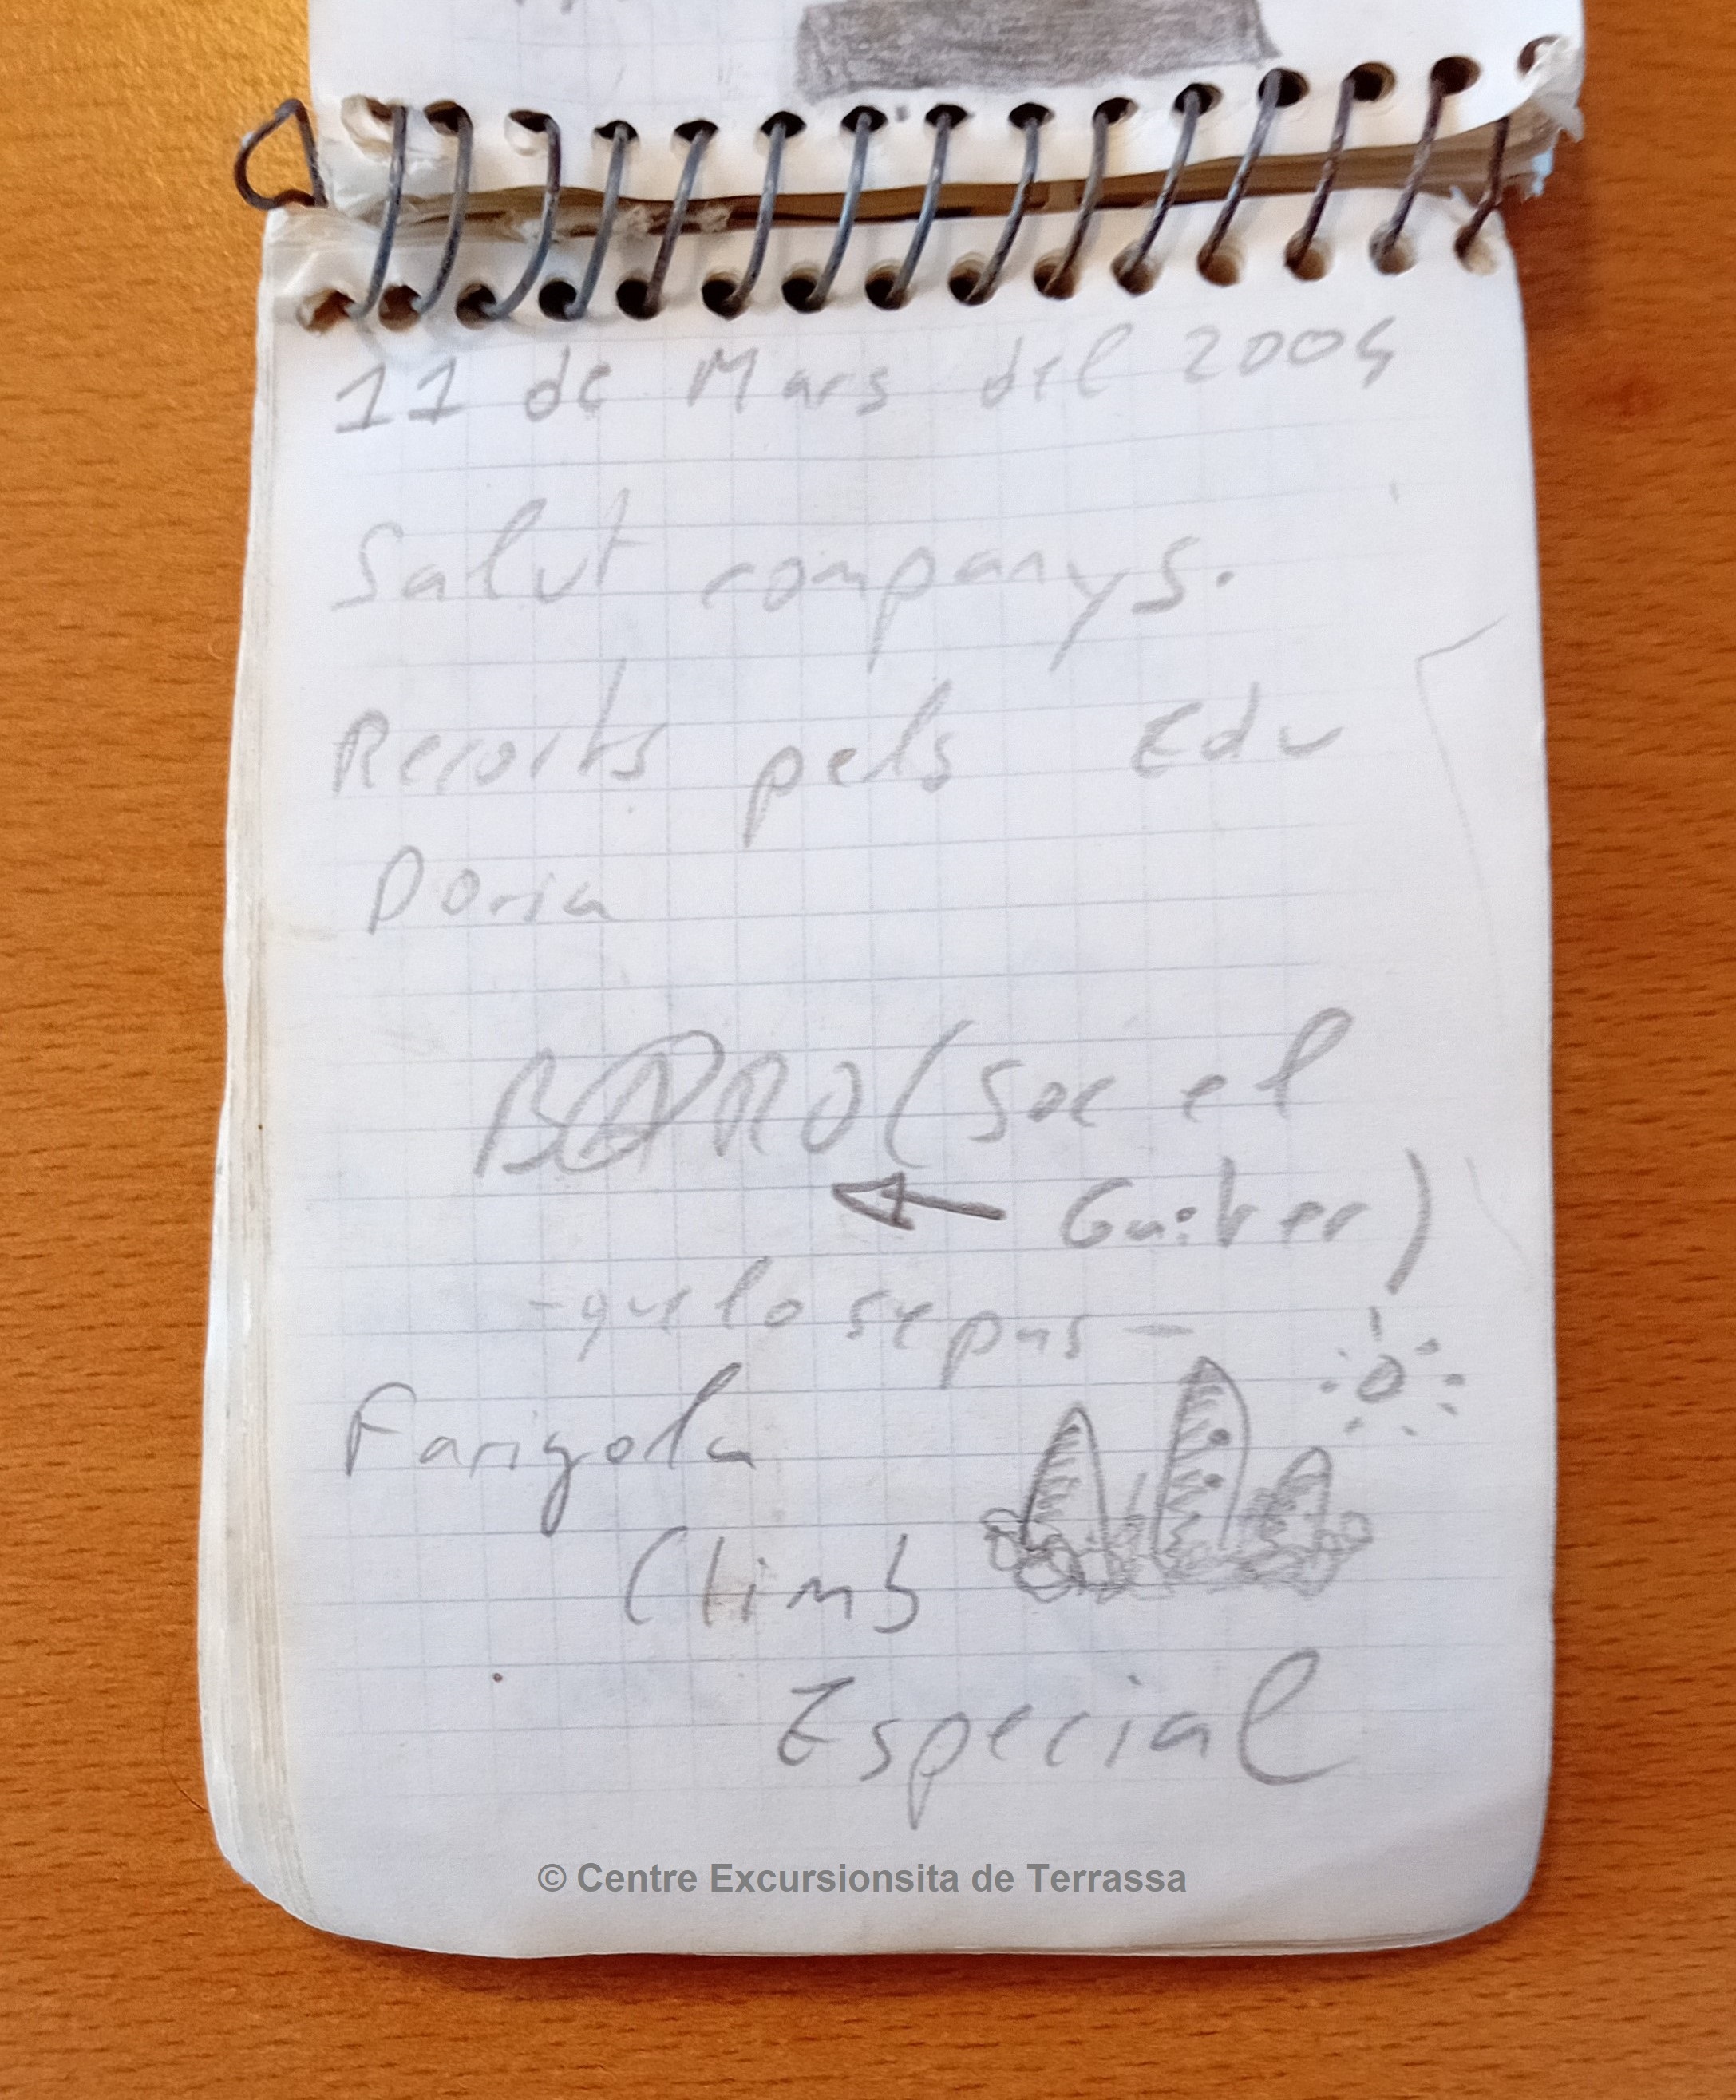 11 de Mars del 2004
Salut companys.
Records pels Edu
Doria
BARRO (Soc el
Guiber)
- que lo sepas -
Farigola
Climb
Especial
© Centre Excursionsita de Terrassa